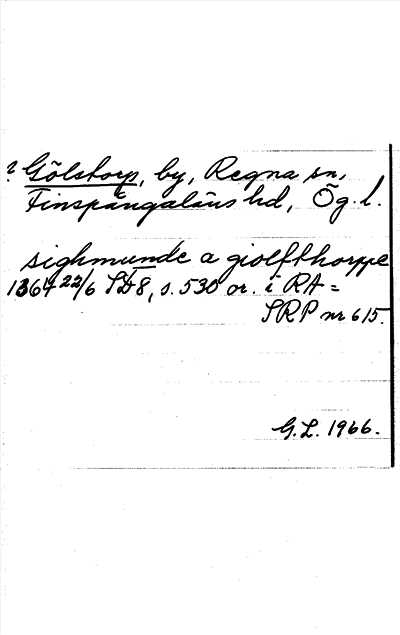 ? Gölstorp, by, Regna sn,
Finspångaläns hd, Ög. l.
sighmunde a giolfthorppe
1364 22/6 SD8, s. 530 or. i RA =
SRP nr 615.
G. L. 1966.